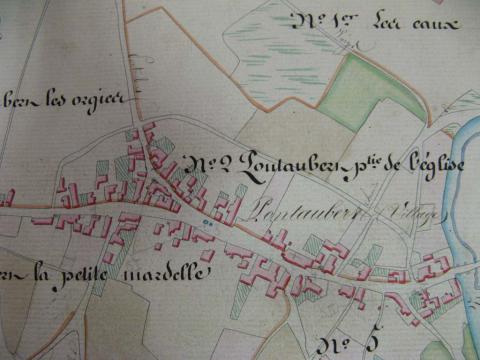 No 1er Les eaux
bern les orgier
No 2 Pontaubern ptie de l'église
Pontaubern (Village)
ern la petite mardelle
No 5